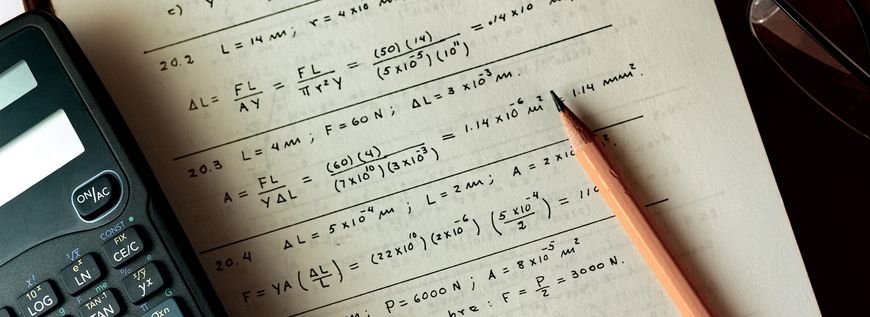 c)
20.2 L = 14 m ; r = 4 × 10
ΔL = FL/AY = FL/πr²Y = (50)(14)/(5×10⁻⁵)(10¹¹) = .14×10
20.3 L = 4 m ; F = 60 N ; ΔL = 3 × 10⁻³ m.
A = FL/YΔL = (60)(4)/(7×10¹⁰)(3×10⁻³) = 1.14 × 10⁻⁶ m² = 1.14 mm².
20.4 ΔL = 5×10⁻⁴ m ; L = 2 m ; A = 2×10
F = YA (ΔL/L) = (22×10¹⁰)(2×10⁻⁶) (5×10⁻⁴/2) = 110
P = 6000 N ; A = 8×10⁻⁵ m²
: F = P/2 = 3000 N.
ON/AC
CONST
FIX
CE/C
³√x
eˣ
LN
x!
10ˣ
LOG
ˣ√y
yˣ
TAN⁻¹
TAN